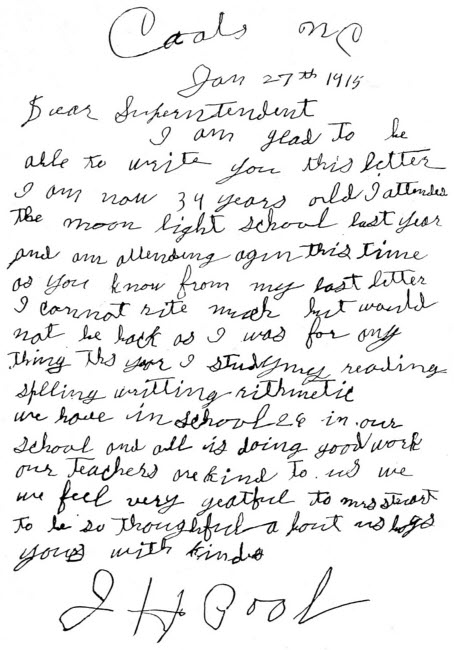 Coals NC
Jan 27th 1915
Dear Superntendent
I am glad to be
able to write you this letter
I am now 34 years old I attendes
the moon light school last year
and am attending agin this time
as you know from my last letter
I cannot rite much but would
not be back as I was for any
thing ths year I study my reading
splling writting rithmetic
we have in school 26 in our
school and all is doing good work
our teachers are kind to us we
we feel very gratful to mrs stewart
to be so thoughful a bout us
yours with kinds
J H Pool